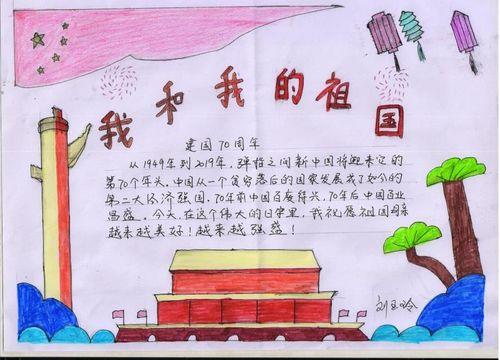 我和我的祖国
建国70周年
从1949年到2019年，弹指之间新中国将迎来它的
第70个年头。中国从一个贫穷落后的国家发展成了如今的
第二大经济强国，70年前中国百废待兴，70年后中国百业
昌盛。今天，在这个伟大的日子里，我祝愿祖国母亲
越来越美好！越来越强盛！